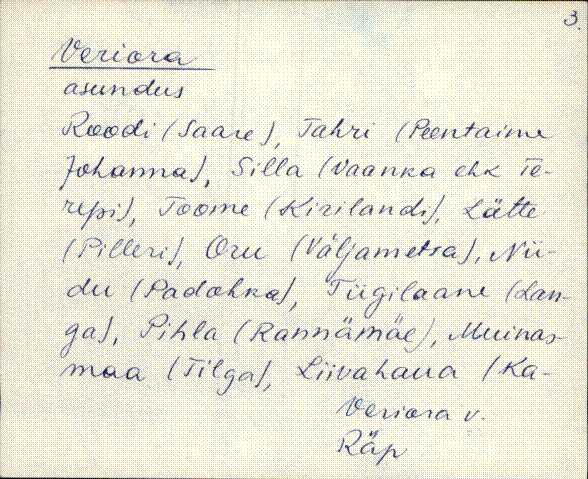 3.
Veriora
asundus
Roodi (Saare), Tahri (Peentaime
Johanna), Silla (Vaanka ehk Te-
repi), Toome (Kirilandi), Lätte
(Pilleri), Oru (Väljametsa), Nii-
du (Padahka), Tiigilaane (Lan-
ga), Pihla (Rannämäe), Muinas-
maa (Tilga), Liivahaua (Ka-
Veriora v.
Räp